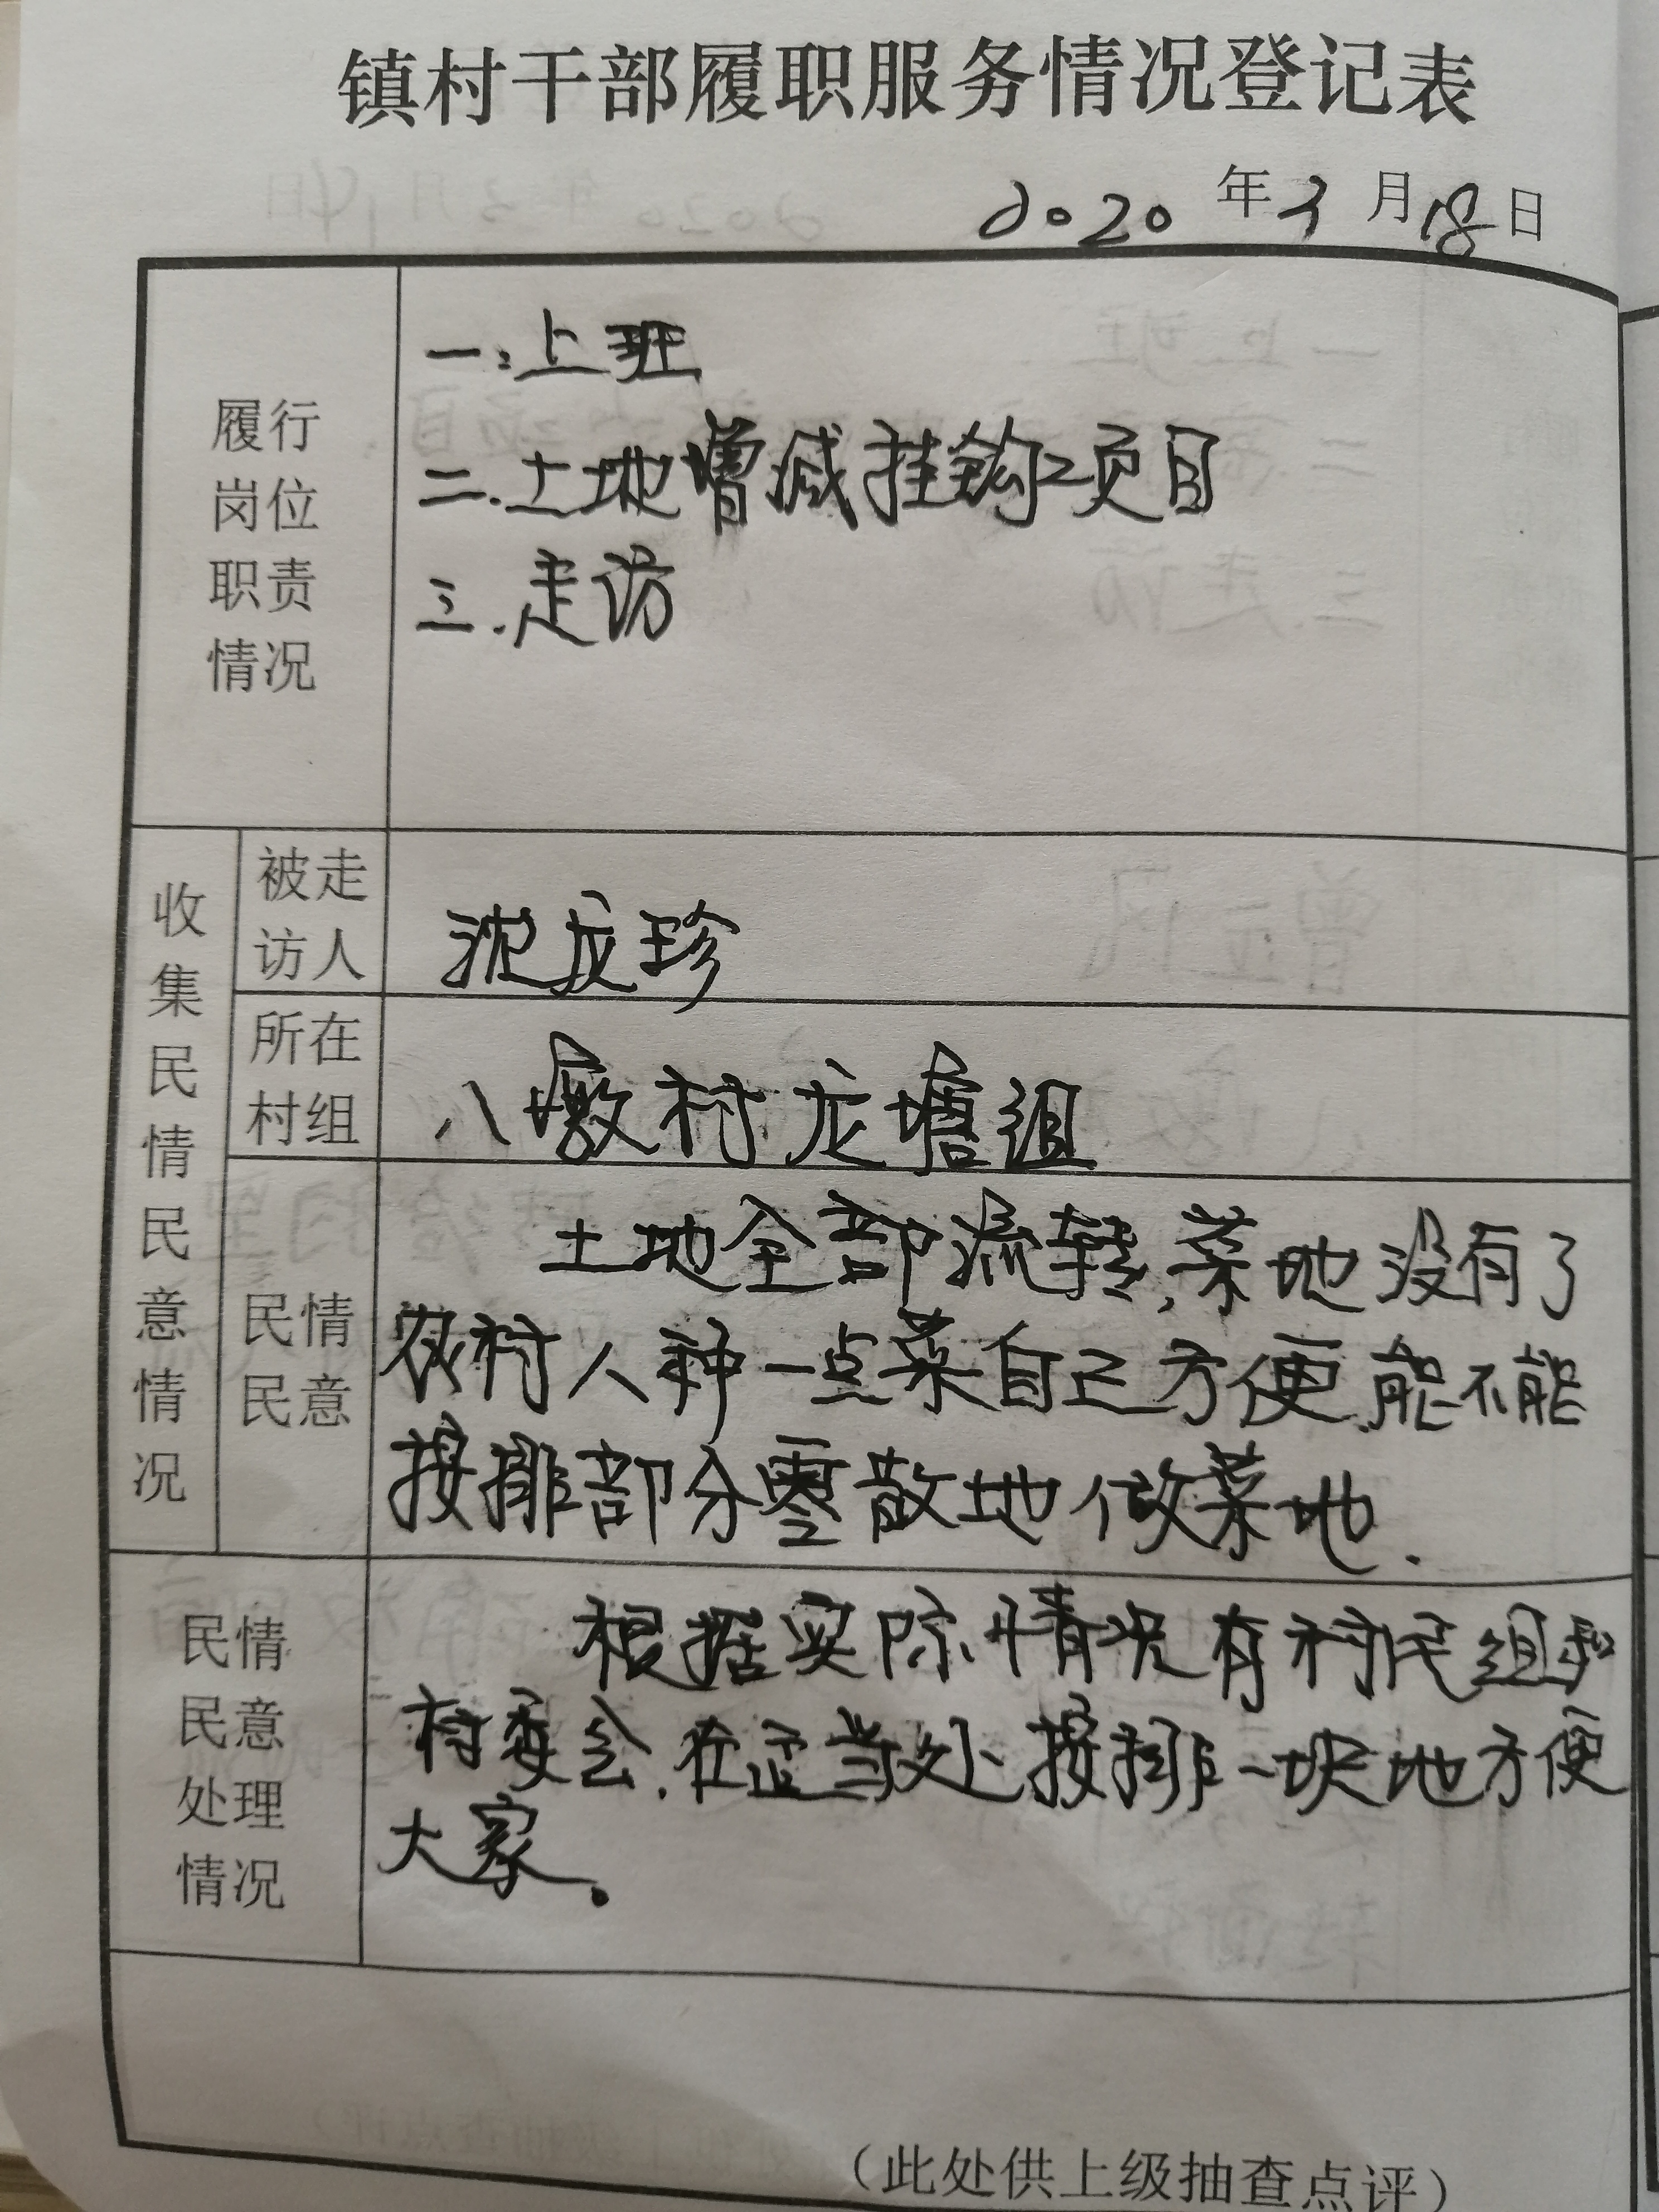 镇村干部履职服务情况登记表
2020年3月18日
履行
岗位
职责
情况
一.上班
二.土地增减挂钩项目
三.走访
收集民情民意情况
被走
访人
沈友珍
所在
村组
八墩村龙塘组
民情
民意
土地全部流转,菜地没有了
农村人种一点菜自己方便.能不能
按排部分零散地做菜地.
民情
民意
处理
情况
根据实际情况有村民组和
村委会.在正当处按排一块地方便
大家。
(此处供上级抽查点评)